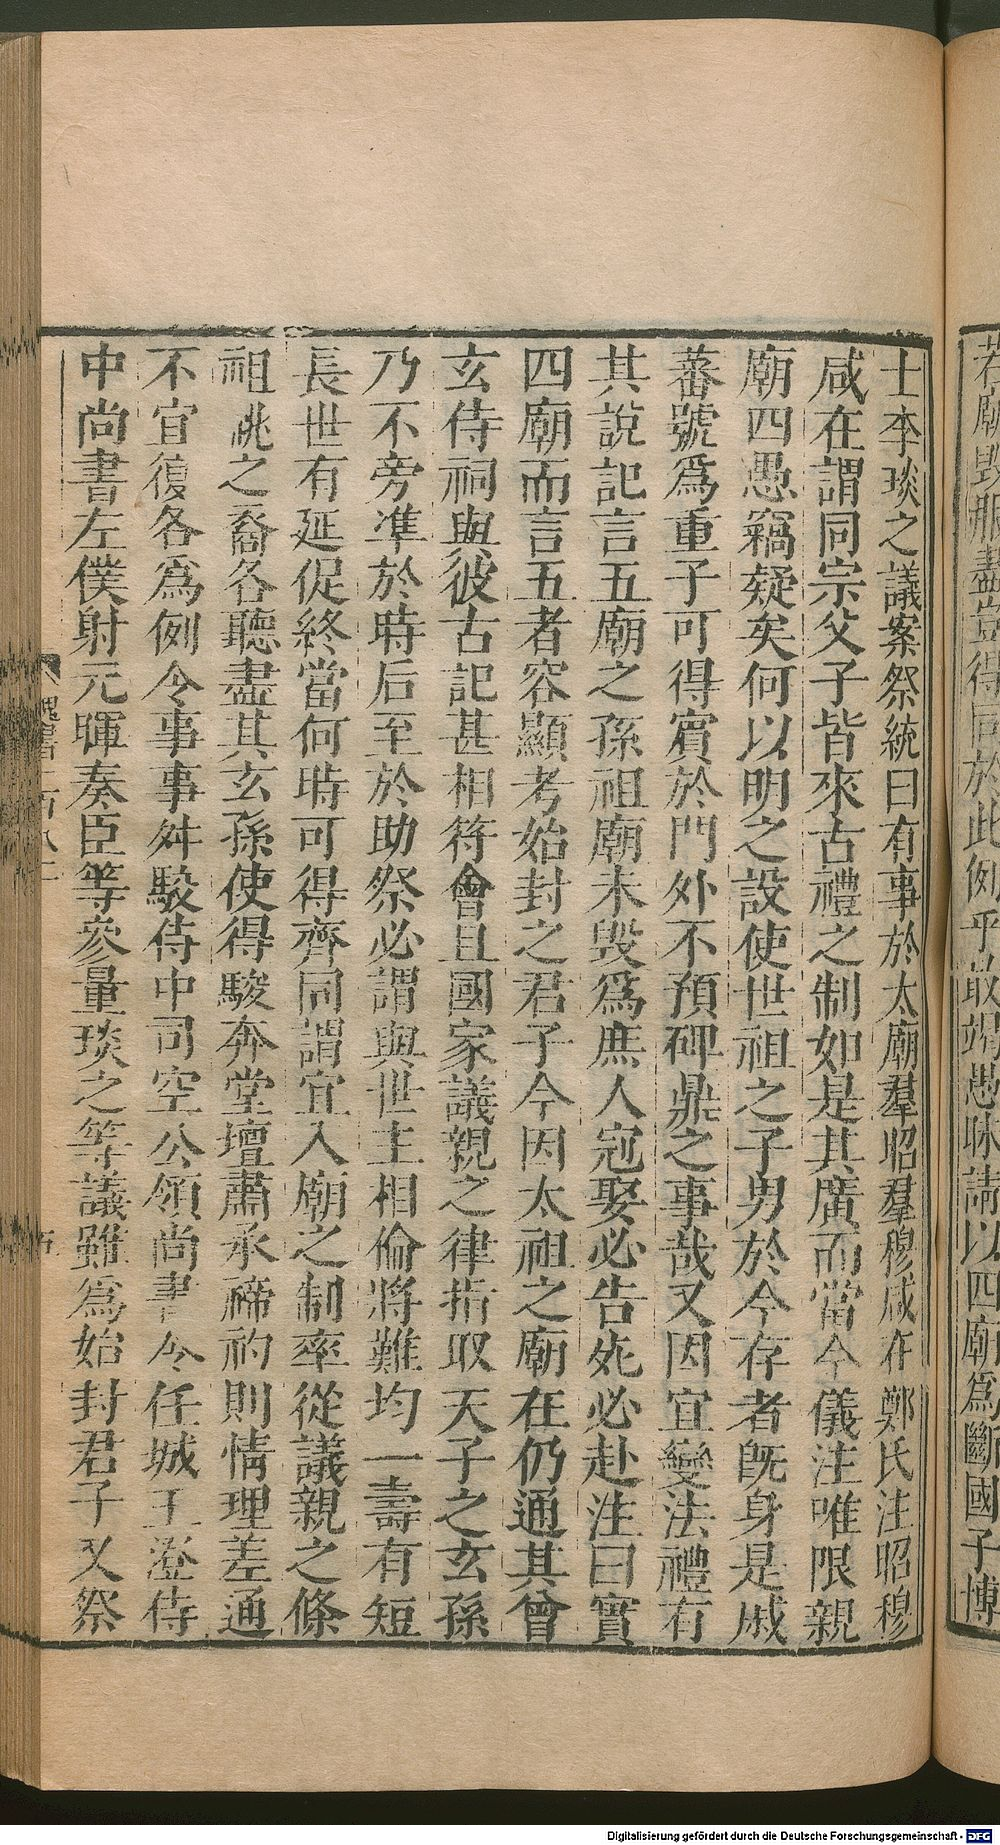 若廟毀服盡豈得同於此例乎敢竭愚昧請以四廟爲斷國子博
士李琰之議案祭統曰有事於太廟羣昭羣穆咸在鄭氏注昭穆
咸在謂同宗父子皆來古禮之制如是其廣而當今儀注唯限親
廟四愚竊疑矣何以明之設使世祖之子男於今存者旣身是戚
蕃號爲重子可得賓於門外不預碑鼎之事哉又因宜變法禮有
其說記言五廟之孫祖廟未毀爲庶人冠娶必告死必赴注曰實
四廟而言五者容顯考始封之君子今因太祖之廟在仍通其曾
玄侍祠與彼古記甚相符會且國家議親之律指取天子之玄孫
乃不旁準於時后至於助祭必謂與世主相倫將難均一壽有短
長世有延促終當何時可得齊同謂宜入廟之制率從議親之條
祖祧之裔各聽盡其玄孫使得駿奔堂壇肅承禘礿則情理差通
不宜復各爲例令事事舛駮侍中司空公領尚書令任城王澄侍
中尚書左僕射元暉奏臣等參量琰之等議雖爲始封君子又祭
魏書一百八二
Digitalisierung gefördert durch die Deutsche Forschungsgemeinschaft - DFG